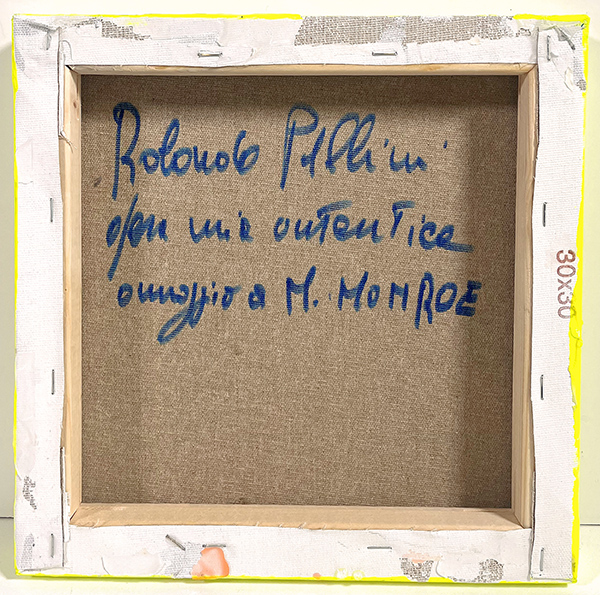 Rolando Pellini
opera mia autentica
omaggio a M. MONROE
30x30